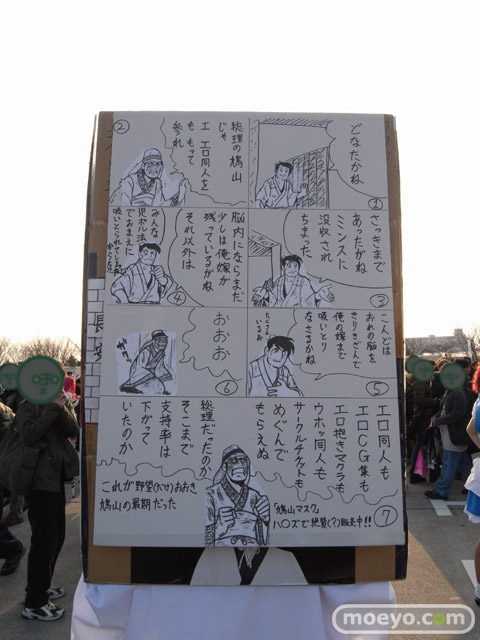 どなたかね
①
②
総理の鳩山
じゃ
エ エロ同人を
も もって
参れ
さっきまで
あったがね
ミンスに
没収され
ちまった
③
脳内にならまだ
少しは俺嫁が
残っているがね
それ以外は
④
みんな
児ポル法
でおまえに
吸いとられてしまった
からな
こんどは
おれの脳を
きりきざんで
俺の嫁まで
吸いとり
なさるかね
たくさん
いるよ
⑤
おおお
⑥
エロ同人も
エロCG集も
エロ抱きマクラも
ウホッ同人も
サークルチケットも
めぐんで
もらえぬ
総理だったのか
そこまで
支持率は
下がって
いたのか
「鳩山マスク」
ハ〇ズで絶賛(?)販売中!!
⑦
これが野望(にげ)おおき
鳩山の最期だった
長安
moeyo.com